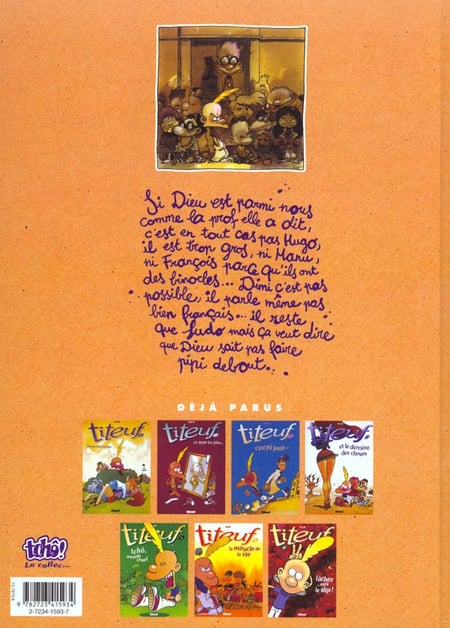 Si Dieu est parmi nous
comme la prof elle a dit,
c'est en tout cas pas Hugo,
il est trop gros, ni Manu,
ni François parce qu'ils ont
des binocles... Dimi c'est pas
possible, il parle même pas
bien français... il reste
que Ludo mais ça veut dire
que Dieu sait pas faire
pipi debout...
DÉJÀ PARUS
titeuf.
titeuf.
titeuf.
titeuf.
c'est pô juste...
et le derrière
des choses
titeuf.
titeuf.
titeuf.
tchô,
monde
cruel
le miracle de
la vie
lâchez
moi
le slip!
tchô!
La collec...
9 782723 415934
2-7234-1593-7